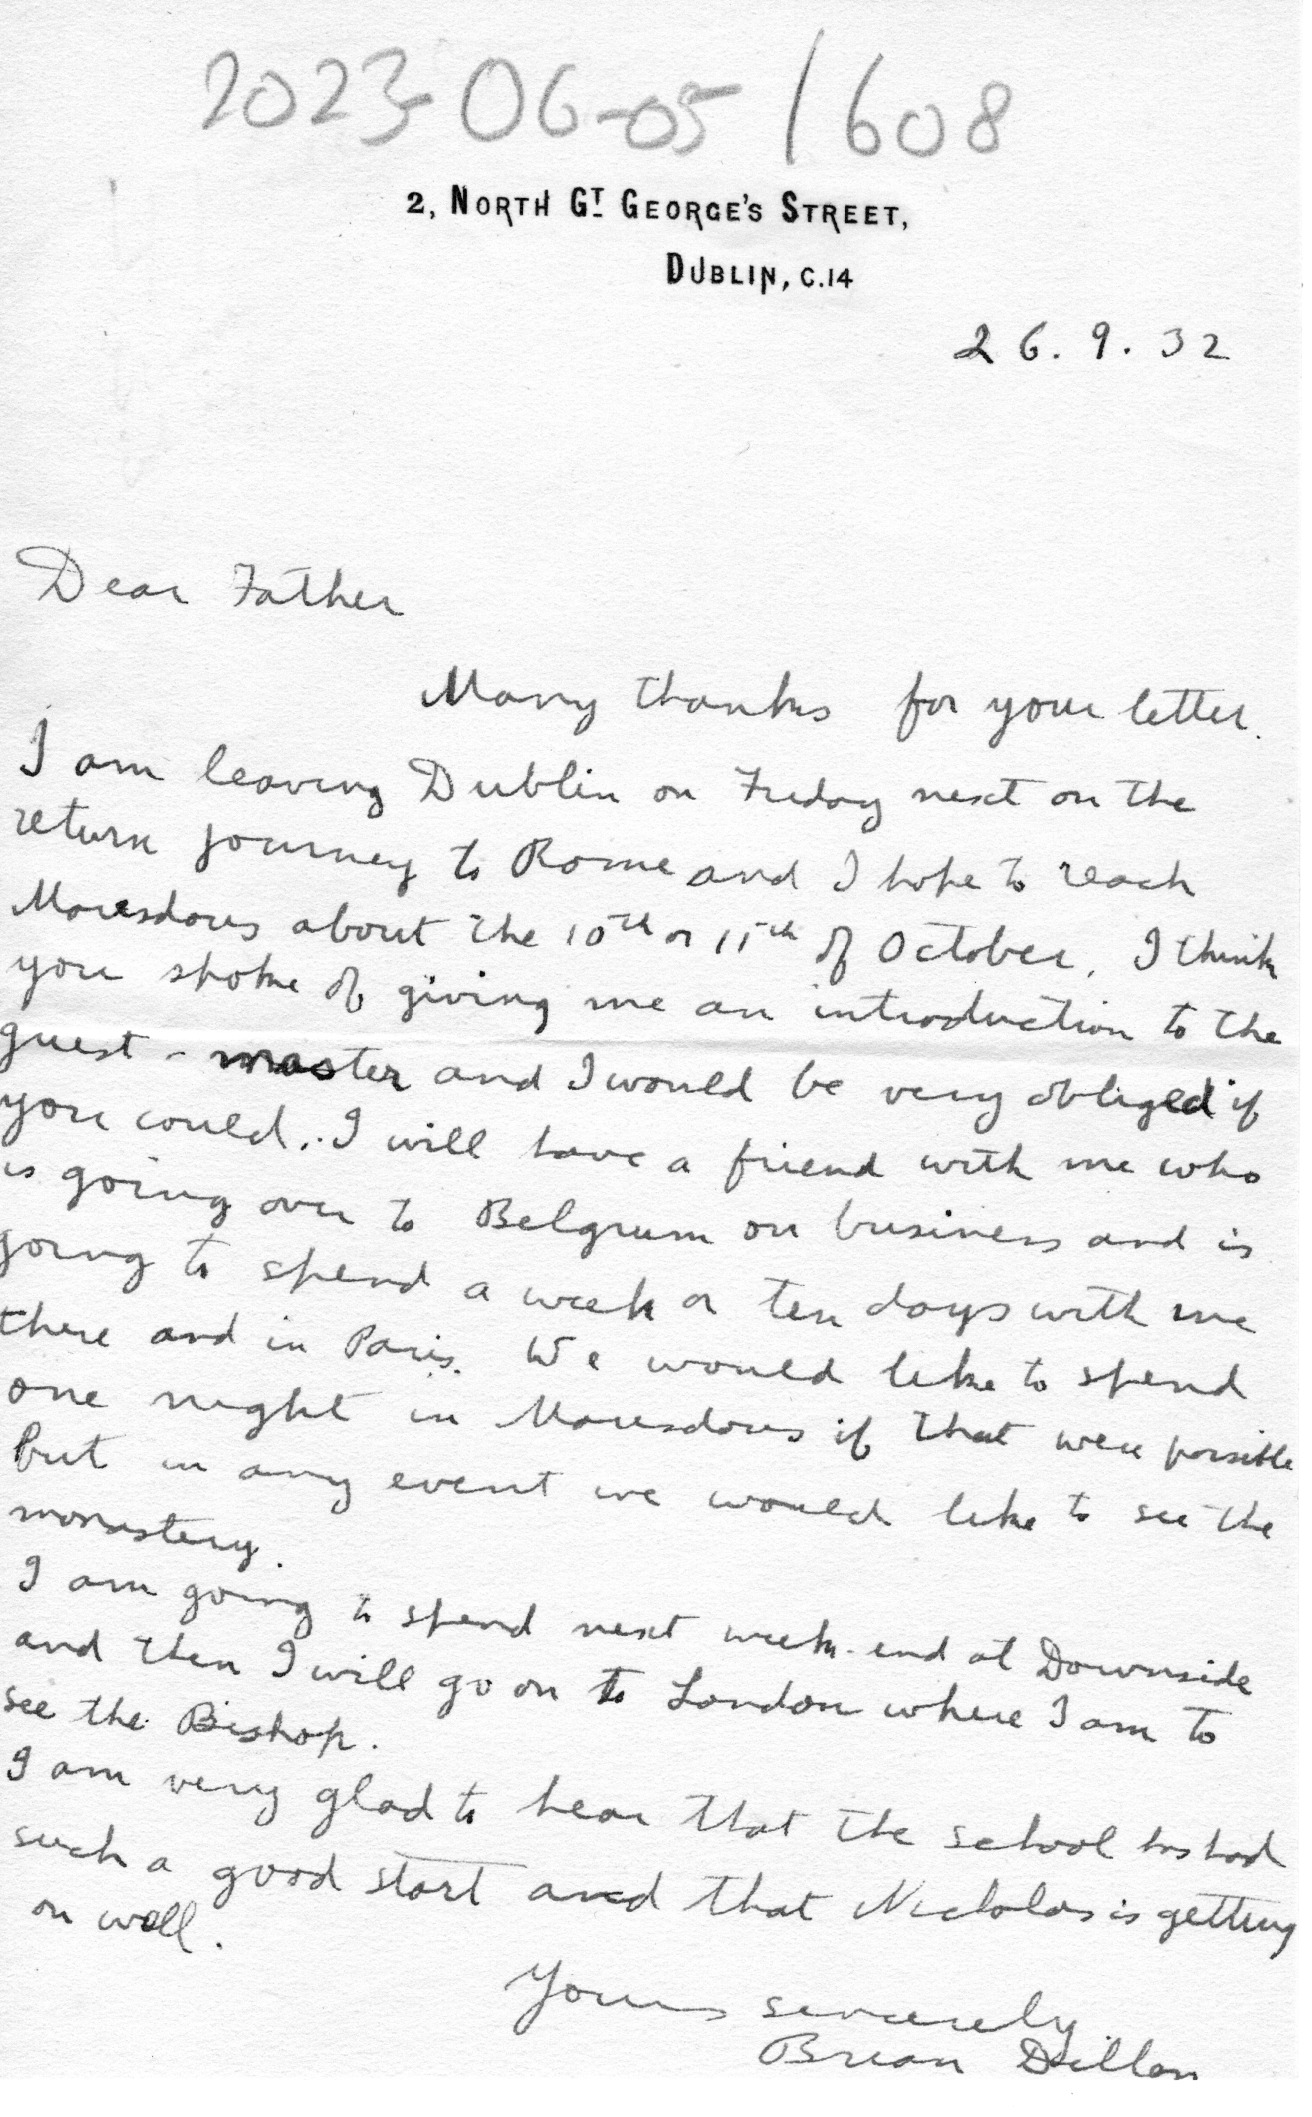 2023-06-05/608
2, NORTH GT GEORGE'S STREET,
DUBLIN, C.14
26.9.32
Dear Father
Many thanks for your letter.
I am leaving Dublin on Friday next on the
return journey to Rome and I hope to reach
Maresdous about the 10th or 11th of October. I think
you spoke of giving me an introduction to the
guest-master and I would be very obliged if
you could. I will have a friend with me who
is going over to Belgium on business and is
going to spend a week or ten days with me
there and in Paris. We would like to spend
one night in Maresdous if that were possible
but in any event we would like to see the
monastery.
I am going to spend next week-end at Downside
and then I will go on to London where I am to
see the Bishop.
I am very glad to hear that the school has had
such a good start and that Nicholas is getting
on well.
Yours sincerely
Brian Dillon